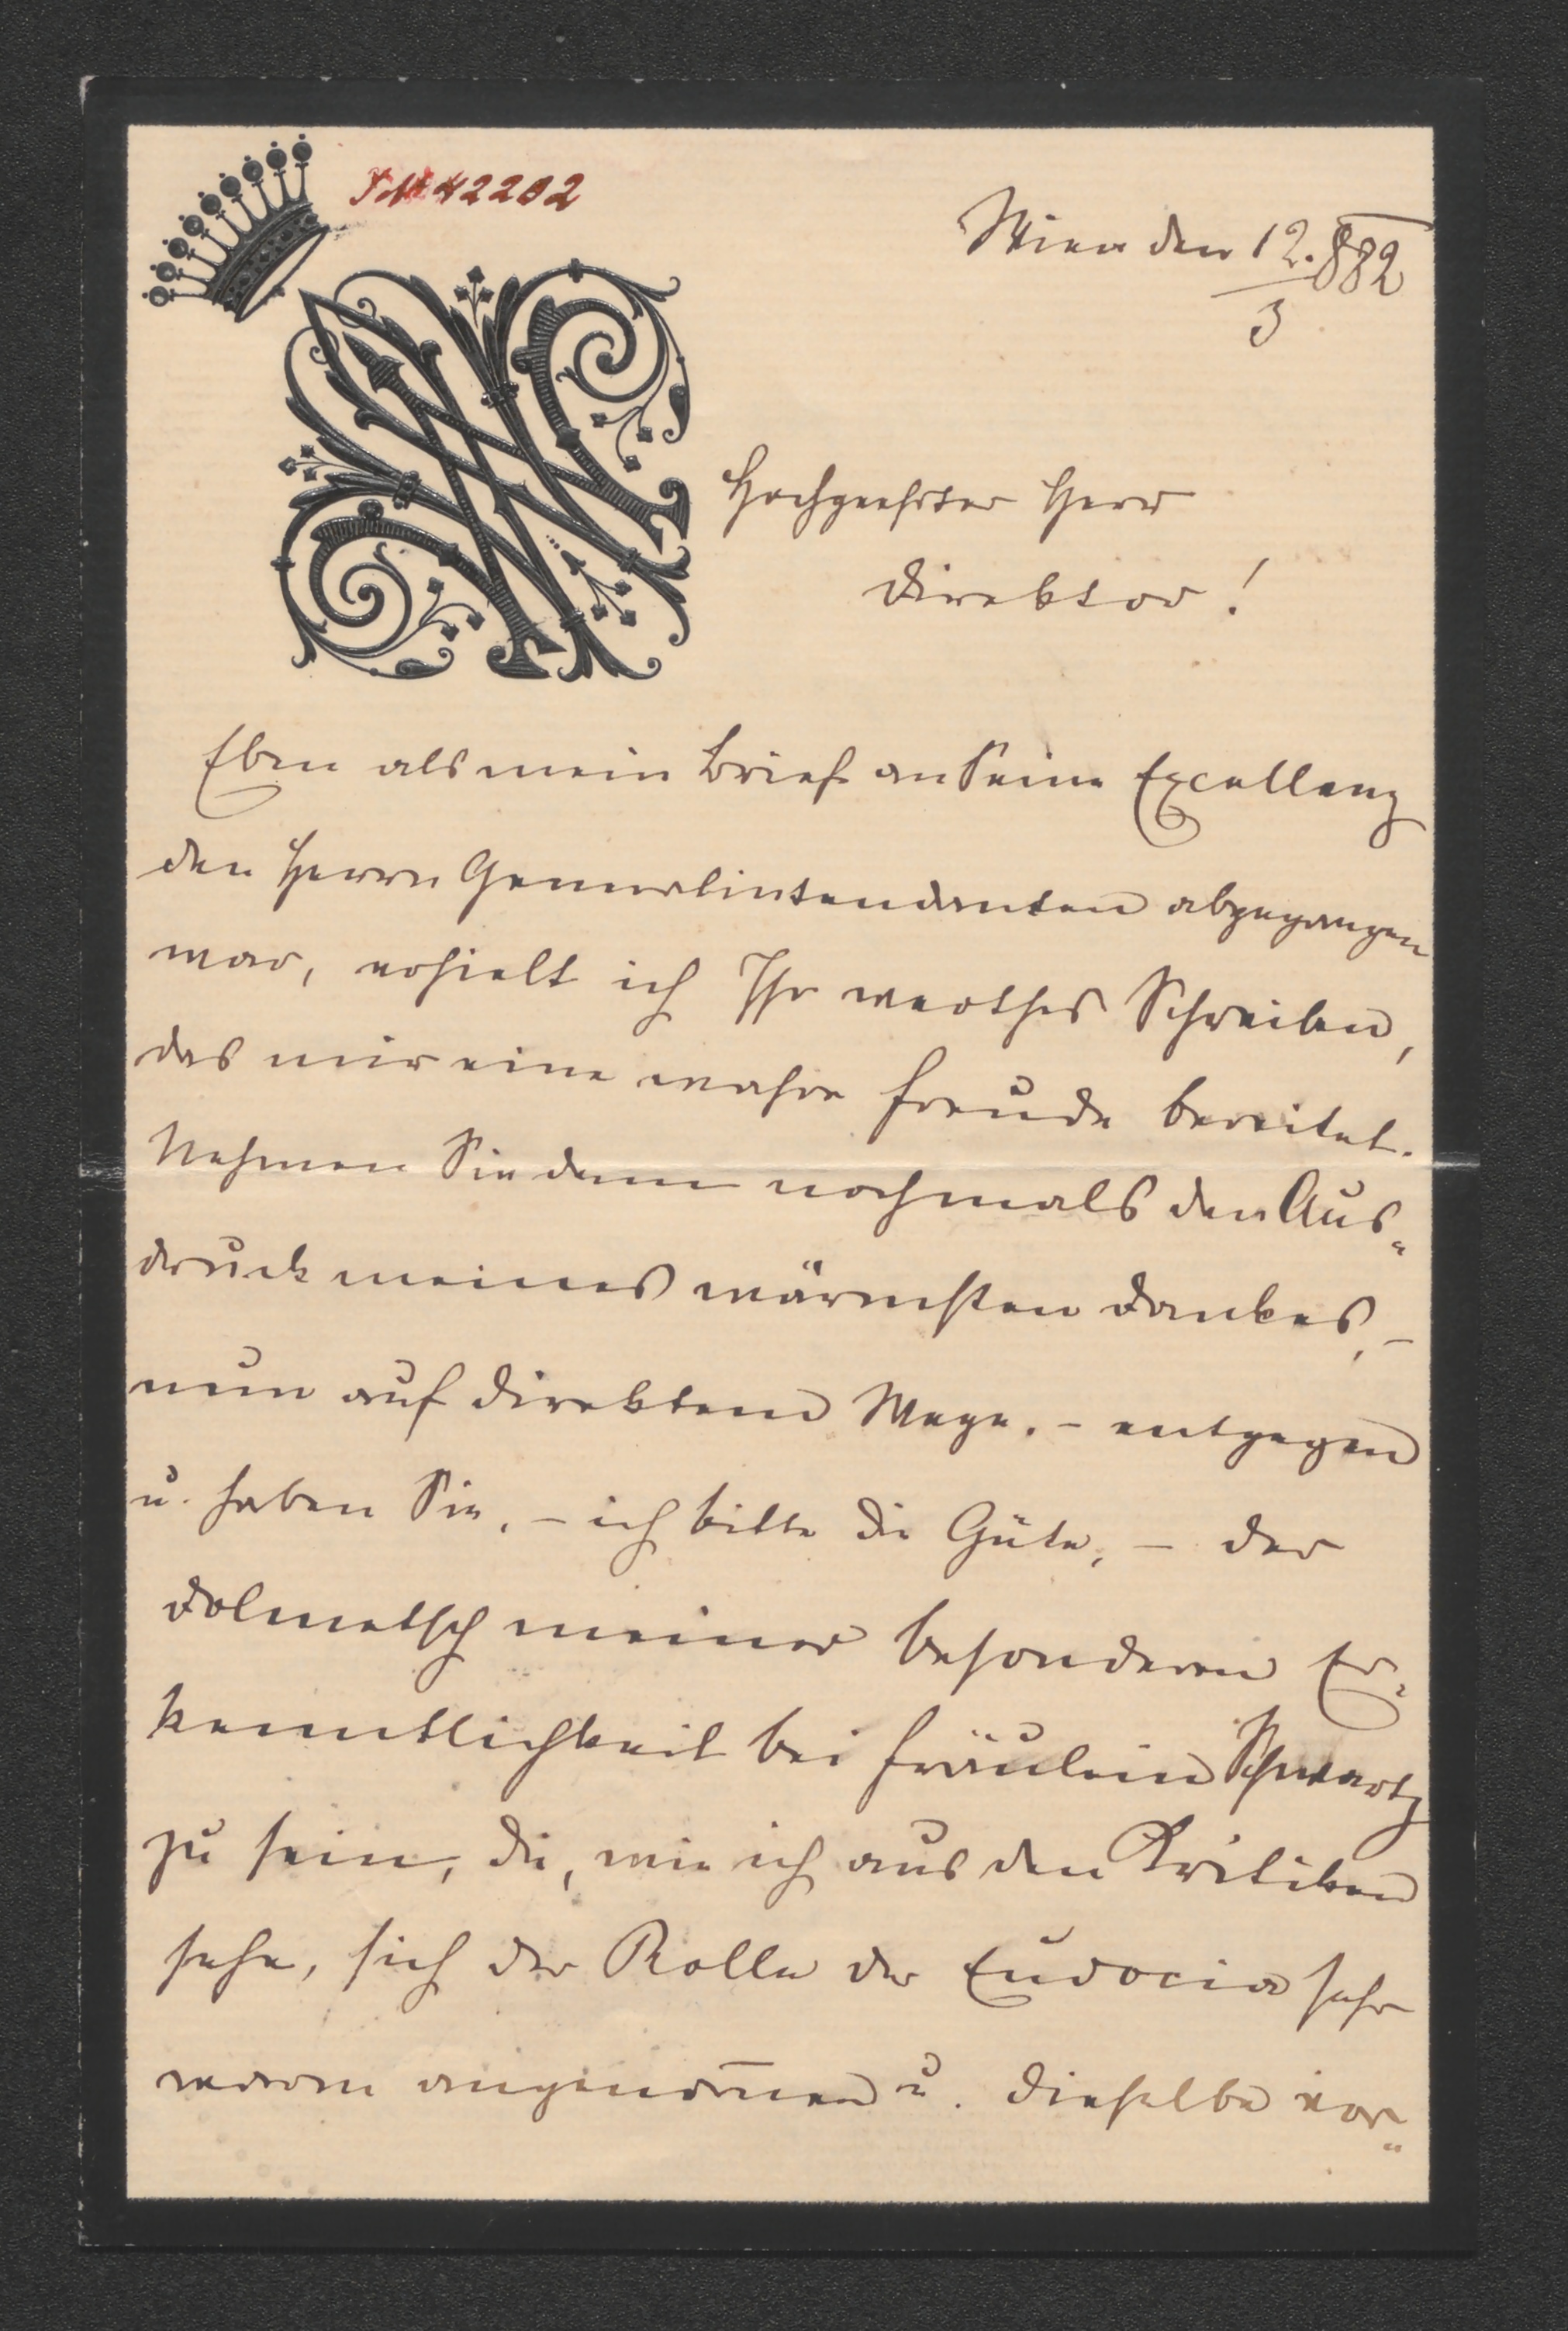 42202
Wien den 12. 882
3
Hochgeehrter Herr
Direktor!
Eben als mein Brief an Seine Excellenz
den Herrn Generalintendanten abgegangen
war, erhielt ich Ihr werthes Schreiben,
das mir eine wahre Freude bereitet.
Nehmen Sie denn nochmals den Aus„
druck meines wärmsten Dankes, –
nun auf direktem Wege, – entgegen
u. haben Sie, – ich bitte die Güte, – der
Dolmetsch meiner besonderen Er„
kenntlichkeit bei Fräulein Schwartz
zu sein, die, wie ich aus den Kritiken
sehe, sich der Rolle der Eudocia sehr
warm angenom̄en u. dieselbe vor„